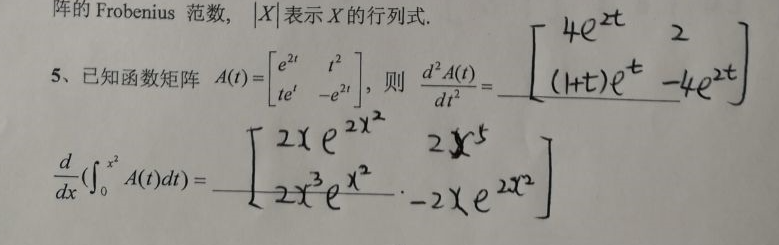 阵的 Frobenius 范数, |X| 表示 X 的行列式.
5、已知函数矩阵 A(t)=[e^{2t} t^2; te^t -e^{2t}], 则 d^2A(t)/dt^2 = [4e^{2t} 2; (1+t)e^t -4e^{2t}]
d/dx(∫_0^{x^2} A(t)dt) = [2xe^{2x^2} 2x^5; 2x^3e^{x^2} -2xe^{2x^2}]